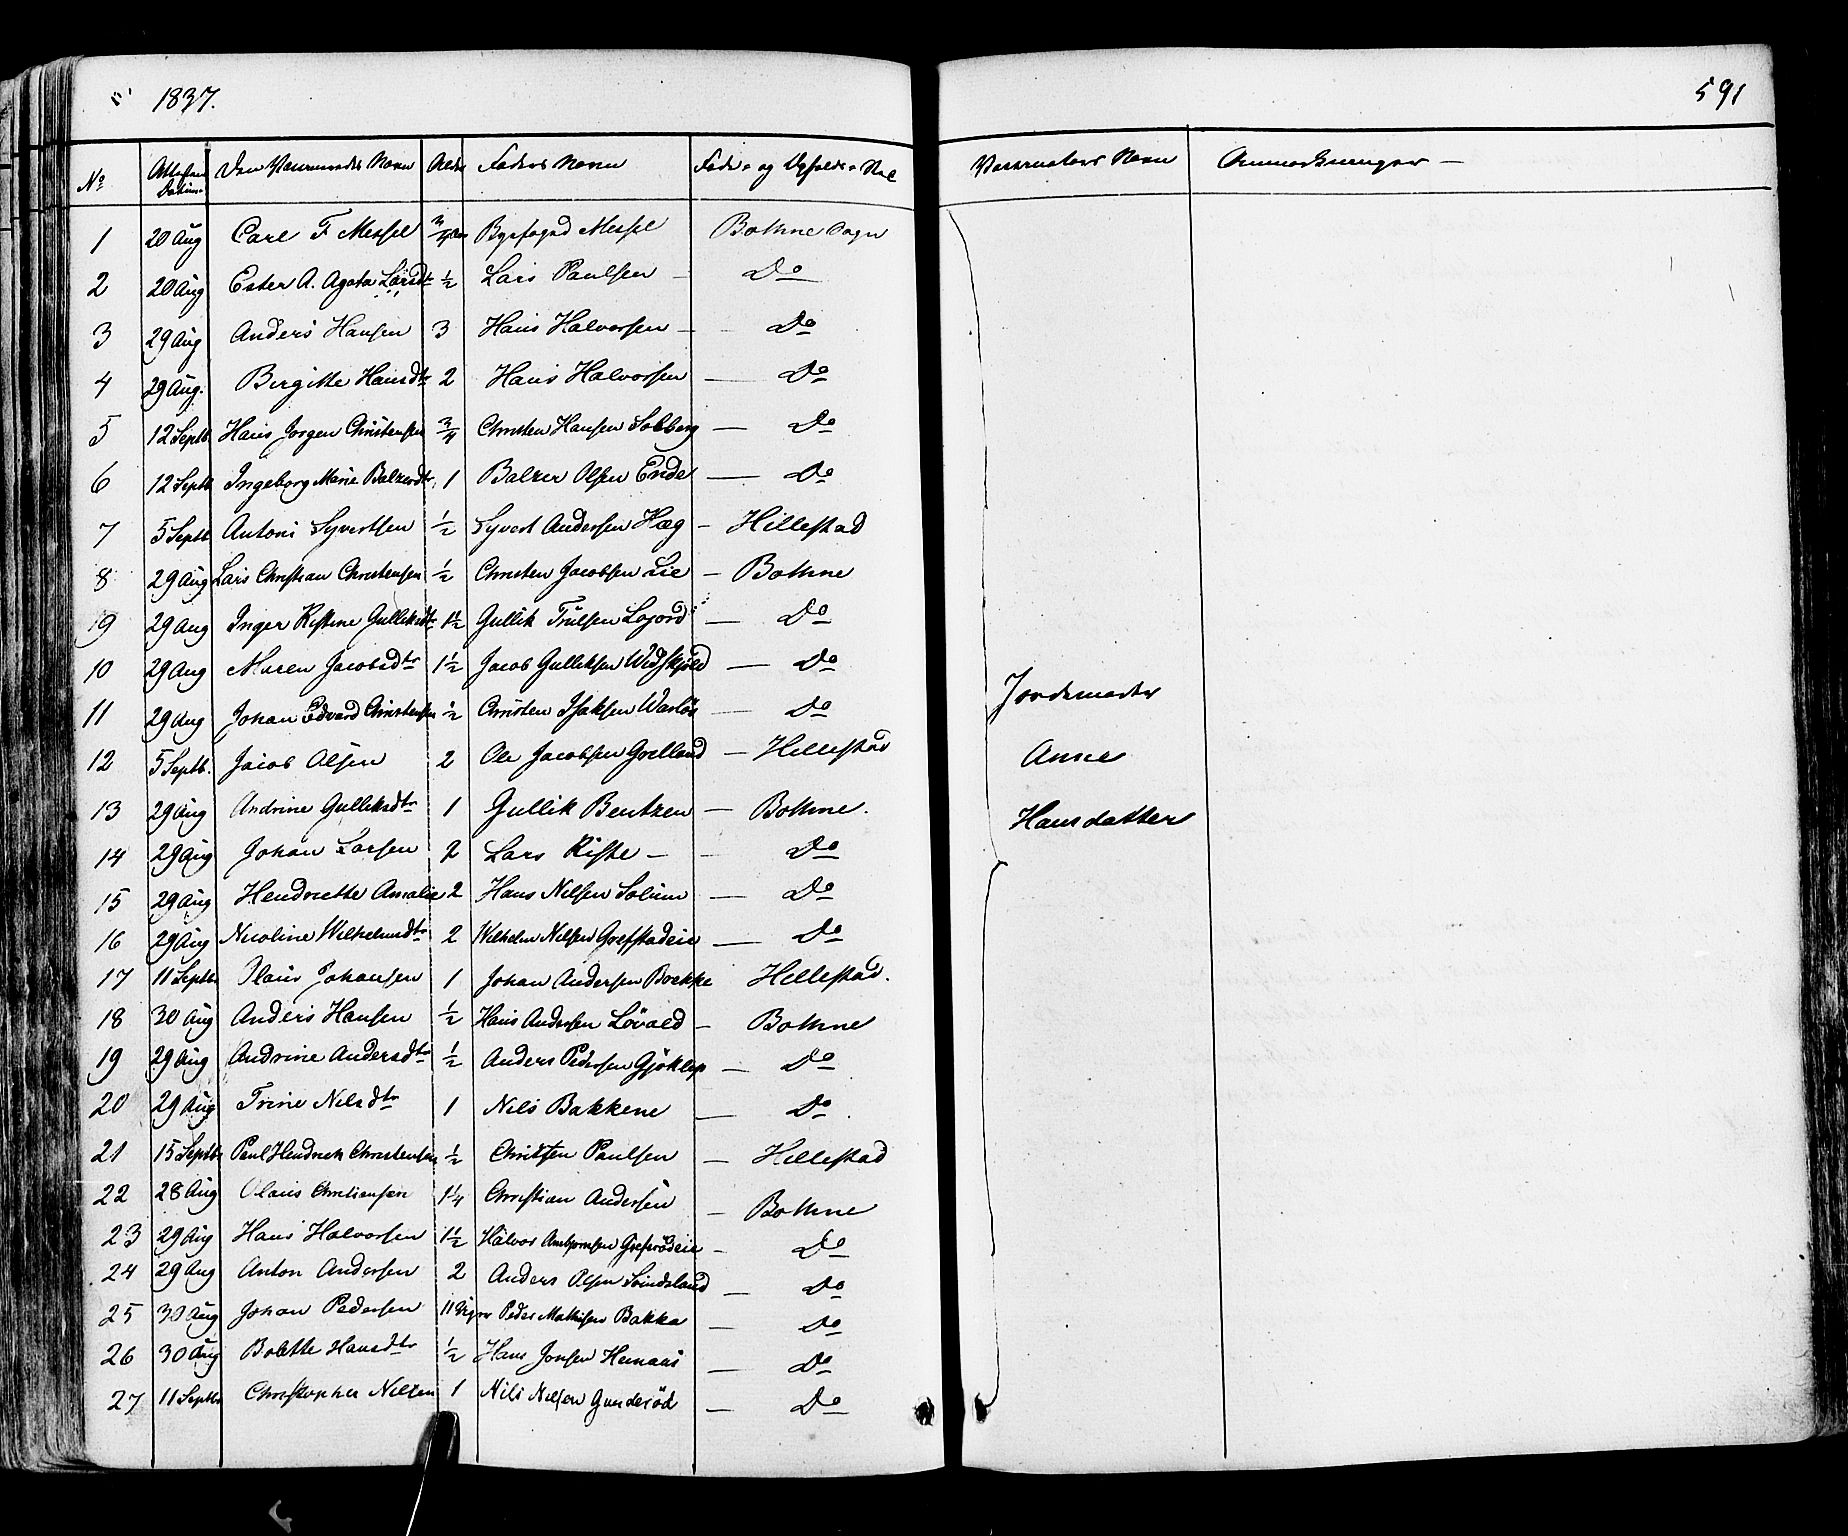 1837.
591
No Attesten Datum Den Vaccineredes Navn Alder Faders Navn Føde- og Opholds-Sted Vaccinators Navn Anmærkninger
1 20 Aug Carl F Messel 3/4 Aar Byefoged Messel Bothne Sogn
2 20 Aug Ester A. Agata Larsdtr 1/2 Lars Paulsen Do
3 29 Aug Anders Hansen 3 Hans Halvorsen Do
4 29 Aug. Birgitte Hansdtr 2 Hans Halvorsen Do
5 12 Septb Hans Jørgen Christensen 3/4 Christen Hansen Solberg Do
6 12 Septb Ingeborg Marie Balzersdtr 1 Balzer Olsen Ende Do
7 5 Septb Antoni Syvertsen 1/2 Syvert Andersen Hæg Hillestad
8 29 Aug Lars Christian Christensen 1/2 Christen Jacobsen Lie Bothne
19 29 Aug Inger Kistine Gulliksdtr 1 1/2 Gullik Trulsen Do
10 29 Aug Maren Jacobsdtr 1 1/2 Jacob Gulliksen Widskjold Do
11 29 Aug Johan Edvard Christensen 1/2 Christen Isaksen Warløs Do
12 5 Septb. Jacob Olsen 2 Ole Jacobsen Grelland Hillestad
13 29 Aug Andrine Gulliksdtr 1 Gullik Bentzen Bothne.
14 29 Aug Johan Larsen 2 Lars Kiste Do
15 29 Aug Hendriette Amalie 2 Hans Nilsen Solum Do
16 29 Aug Nicoline Wilhelmsdtr 2 Wilhelm Nilsen Grefstadeie Do
17 11 Septb Olaus Johansen 1 Johan Andersen Brekke Hillestad.
18 30 Aug Anders Hansen 1/2 Hans Andersen Løvald Bothne
19 29 Aug Andrine Andersdtr 1/2 Anders Pedersen Gjøklep Do
20 29 Aug Trine Nilsdtr 1 Nils Bakkene Do
21 15 Septb Paul Hendrich Christensen 1/2 Christen Paulsen Hillestad
22 28 Aug Olaus Christiansen 1 1/4 Christian Andersen Bothne
23 29 Aug Hans Halvorsen 1 1/2 Halvor Do
24 29 Aug Anton Andersen 2 Anders Olsen Svindsland Do
25 30 Aug Johan Pedersen 11 Uger Peder Mathisen Bakka Do
26 30 Aug Bolette Hansdtr 1/2 Hans Jonsen Hemaas Do
27 11 Septb Christopher Nilsen 1 Nils Nilsen Gunderød Do
Jordemoder
Anne
Hansdatter